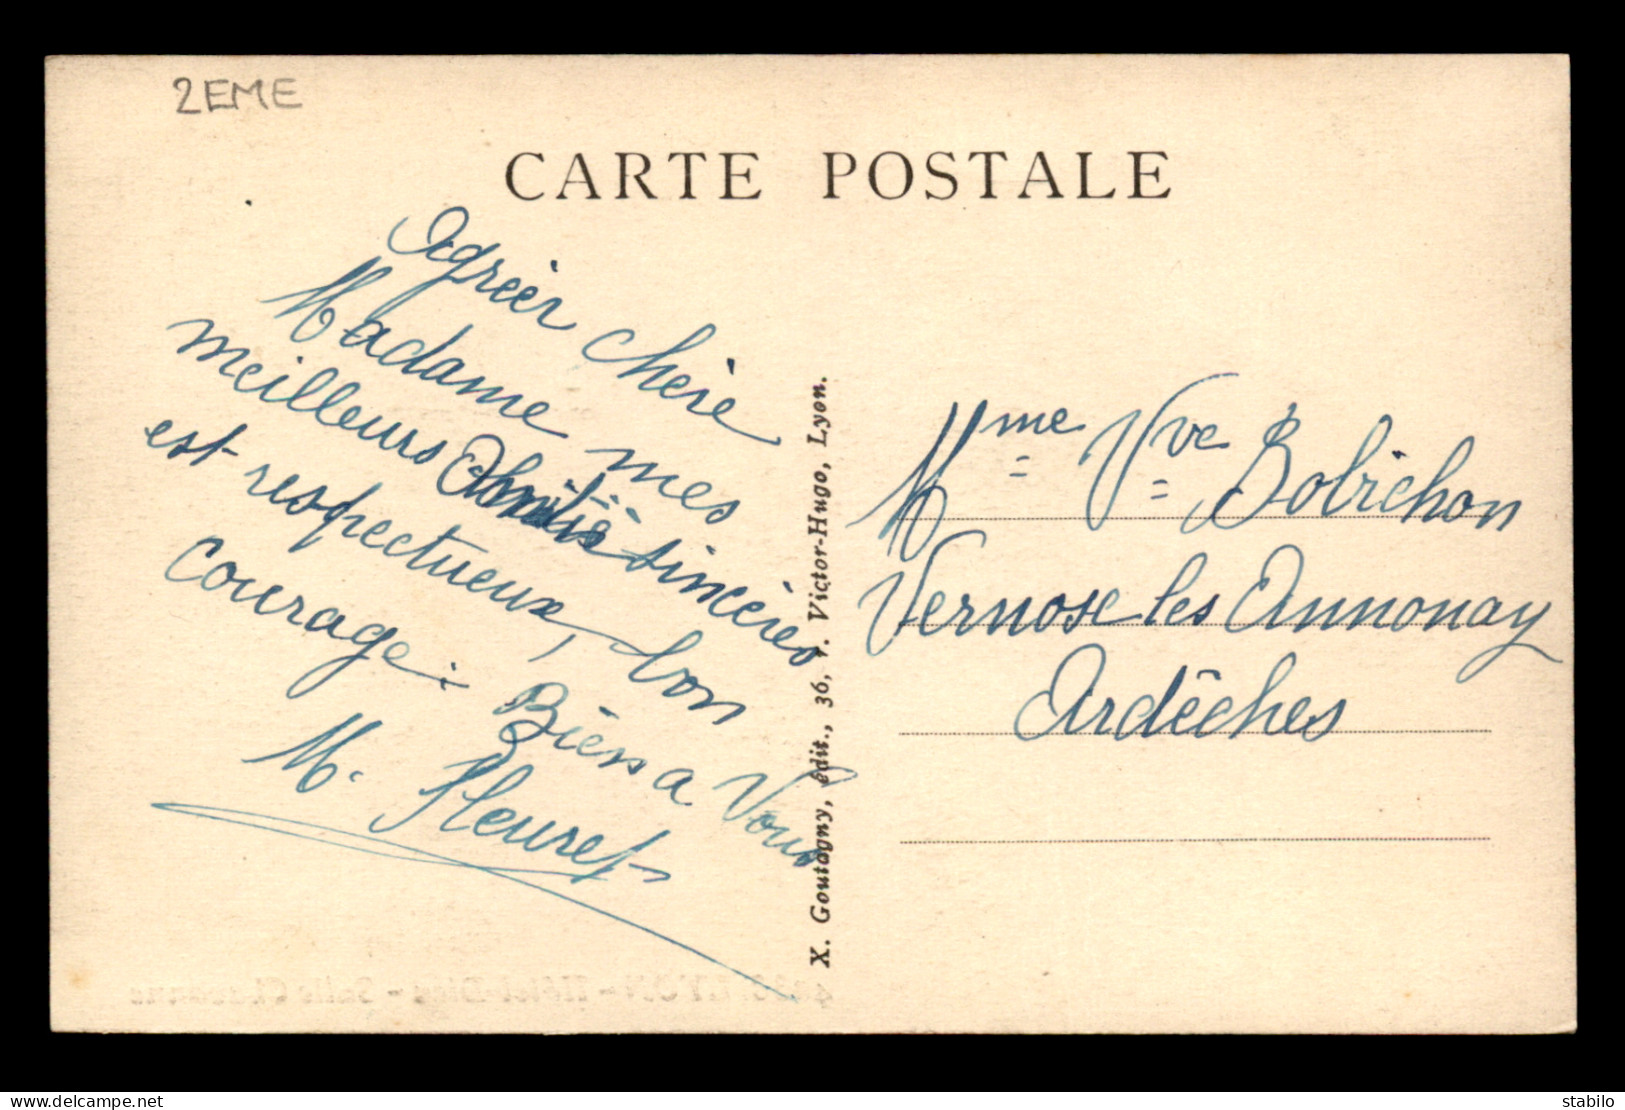 2EME
CARTE POSTALE
Agréer chère
Madame mes
meilleurs Amitiè sincères
est respectueux, bon
courage. Bièn a Vous
M. Fleuret
X. Goutagny, édit., 36, r. Victor-Hugo, Lyon.
Mme Vve Bobichon
Vernosc les Annonay
Ardêches
www.delcampe.net
stabilo